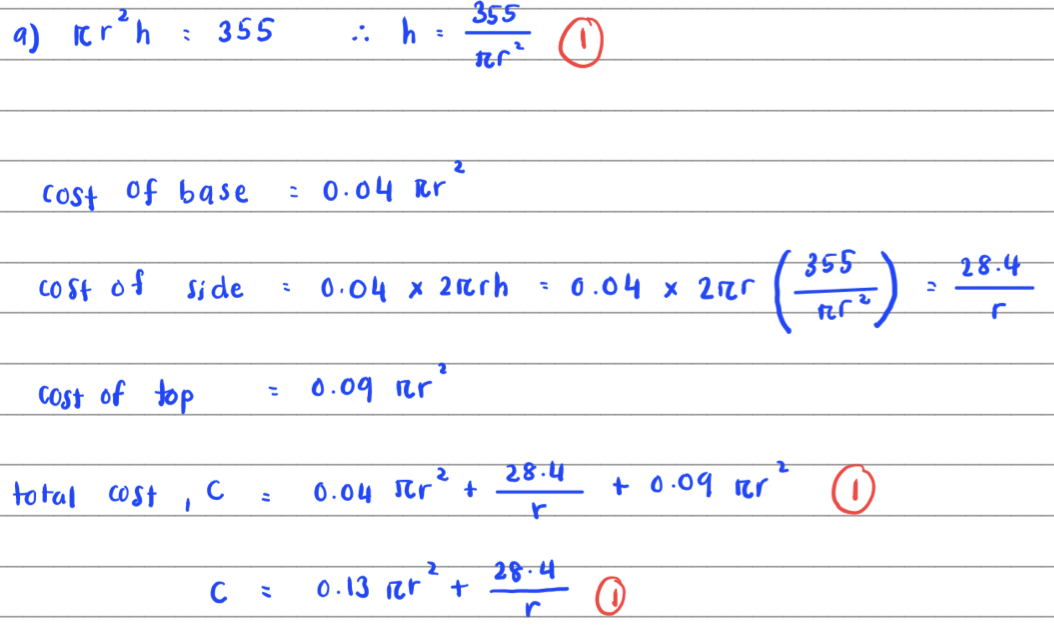 a) πr²h = 355 ∴ h = 355/πr² ①
cost of base = 0.04 πr²
cost of side = 0.04 × 2πrh = 0.04 × 2πr (355/πr²) = 28.4/r
cost of top = 0.09 πr²
total cost, C = 0.04 πr² + 28.4/r + 0.09 πr² ①
C = 0.13 πr² + 28.4/r ①